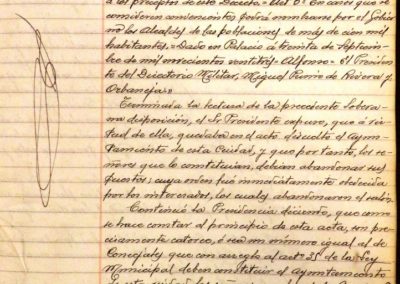 a los preceptos de este Decreto.= Art. 6º En casos que se
consideren convenientes podrá nombrarse por el Gobier-
no los Alcaldes de las poblaciones de más de cien mil
habitantes.= Dado en Palacio á treinta de Septiem-
bre de mil novecientos veintitrés= Alfonso= El Presiden-
te del Directorio Militar, Miguel Primo de Rivera y
Orbaneja.=
Terminada la lectura de la precedente Sobera-
na disposición, el Sr. Presidente expuso, que á vir-
tud de ella, quedaba en el acto disuelto el Ayun-
tamiento de esta Ciudad, y que por tanto, los se-
ñores que lo constituían, debían abandonar sus
puestos; cuya orden fué inmediatamente obedecida
por los interesados, los cuales abandonaron el salón.
Continuó la Presidencia diciendo, que como
se hace constar al principio de esta acta, son pre-
cisamente catorce, ó sea un número igual al de
Concejales que con arreglo al artº 35 de la Ley
Municipal deben constituir el ayuntamiento